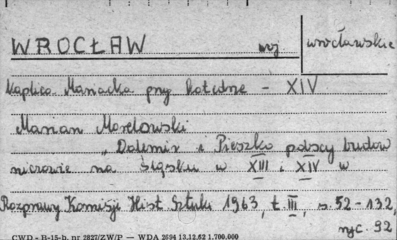 WROCŁAW woj wrocławskie
Kaplica Mariacka przy Katedrze - XIV
Marian Morelowski
"Dalemir i Pieszko polscy budow
niczowie na Śląsku w XIII i XIV w
Rozprawy Komisji Hist Sztuki 1963, t. III, s. 52-132,
ryc. 92
CWD - B-15-b, nr 2827/ZW/P — WDA 2694 13.12.62 1.700.000